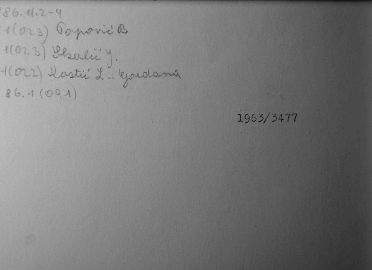 86.11.2-4
1(023) Popović B
1(023) Skerlić J.
1(022) Kostić L.
86.1(091)
1963/3477